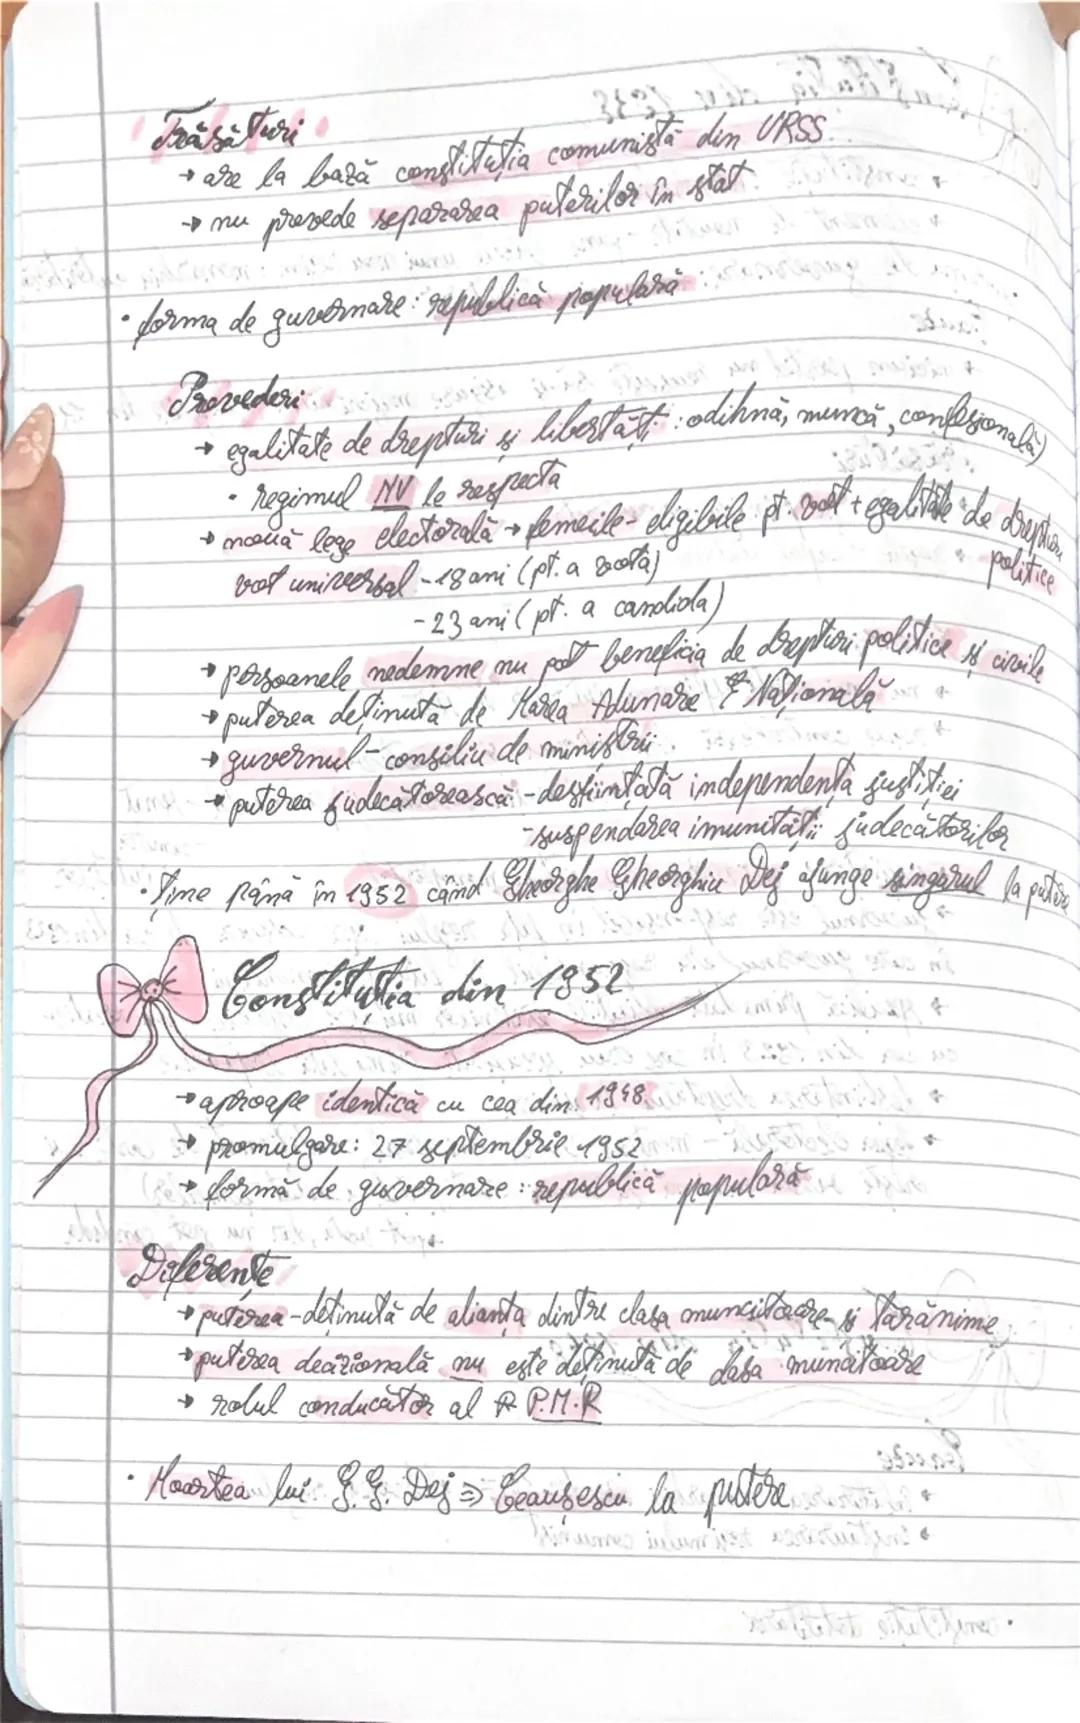 Trăsături
→ are la bază constituția comunistă din URSS
→ nu prevede separarea puterilor în stat
• forma de guvernare: republică populară
Prevederi
→ egalitate de drepturi și libertăți: odihnă, muncă, confesională)
• regimul NU le respecta
→ nouă lege electorală → femeile - eligibile pt. vot + egalitate de drepturi politice
vot universal - 18 ani (pt. a vota)
- 23 ani (pt. a candida)
→ persoanele nedemne nu pot beneficia de drepturi politice și civile
→ puterea deținută de Marea Adunare Națională
→ guvernul - consiliu de miniștrii
→ puterea judecătorească - desființată independența justiției
- suspendarea imunității judecătorilor
• Ține până în 1952 când Gheorghe Gheorghiu Dej ajunge singurul la putere
Constituția din 1952
→ aproape identică cu cea din 1948
→ promulgare: 27 septembrie 1952
→ formă de guvernare: republică populară
Diferențe
→ puterea - deținută de alianța dintre clasa muncitoare și țărănime
→ puterea decizională nu este deținută de clasa muncitoare
→ rolul conducător al P.M.R
• Moartea lui G. G. Dej => Ceaușescu la putere